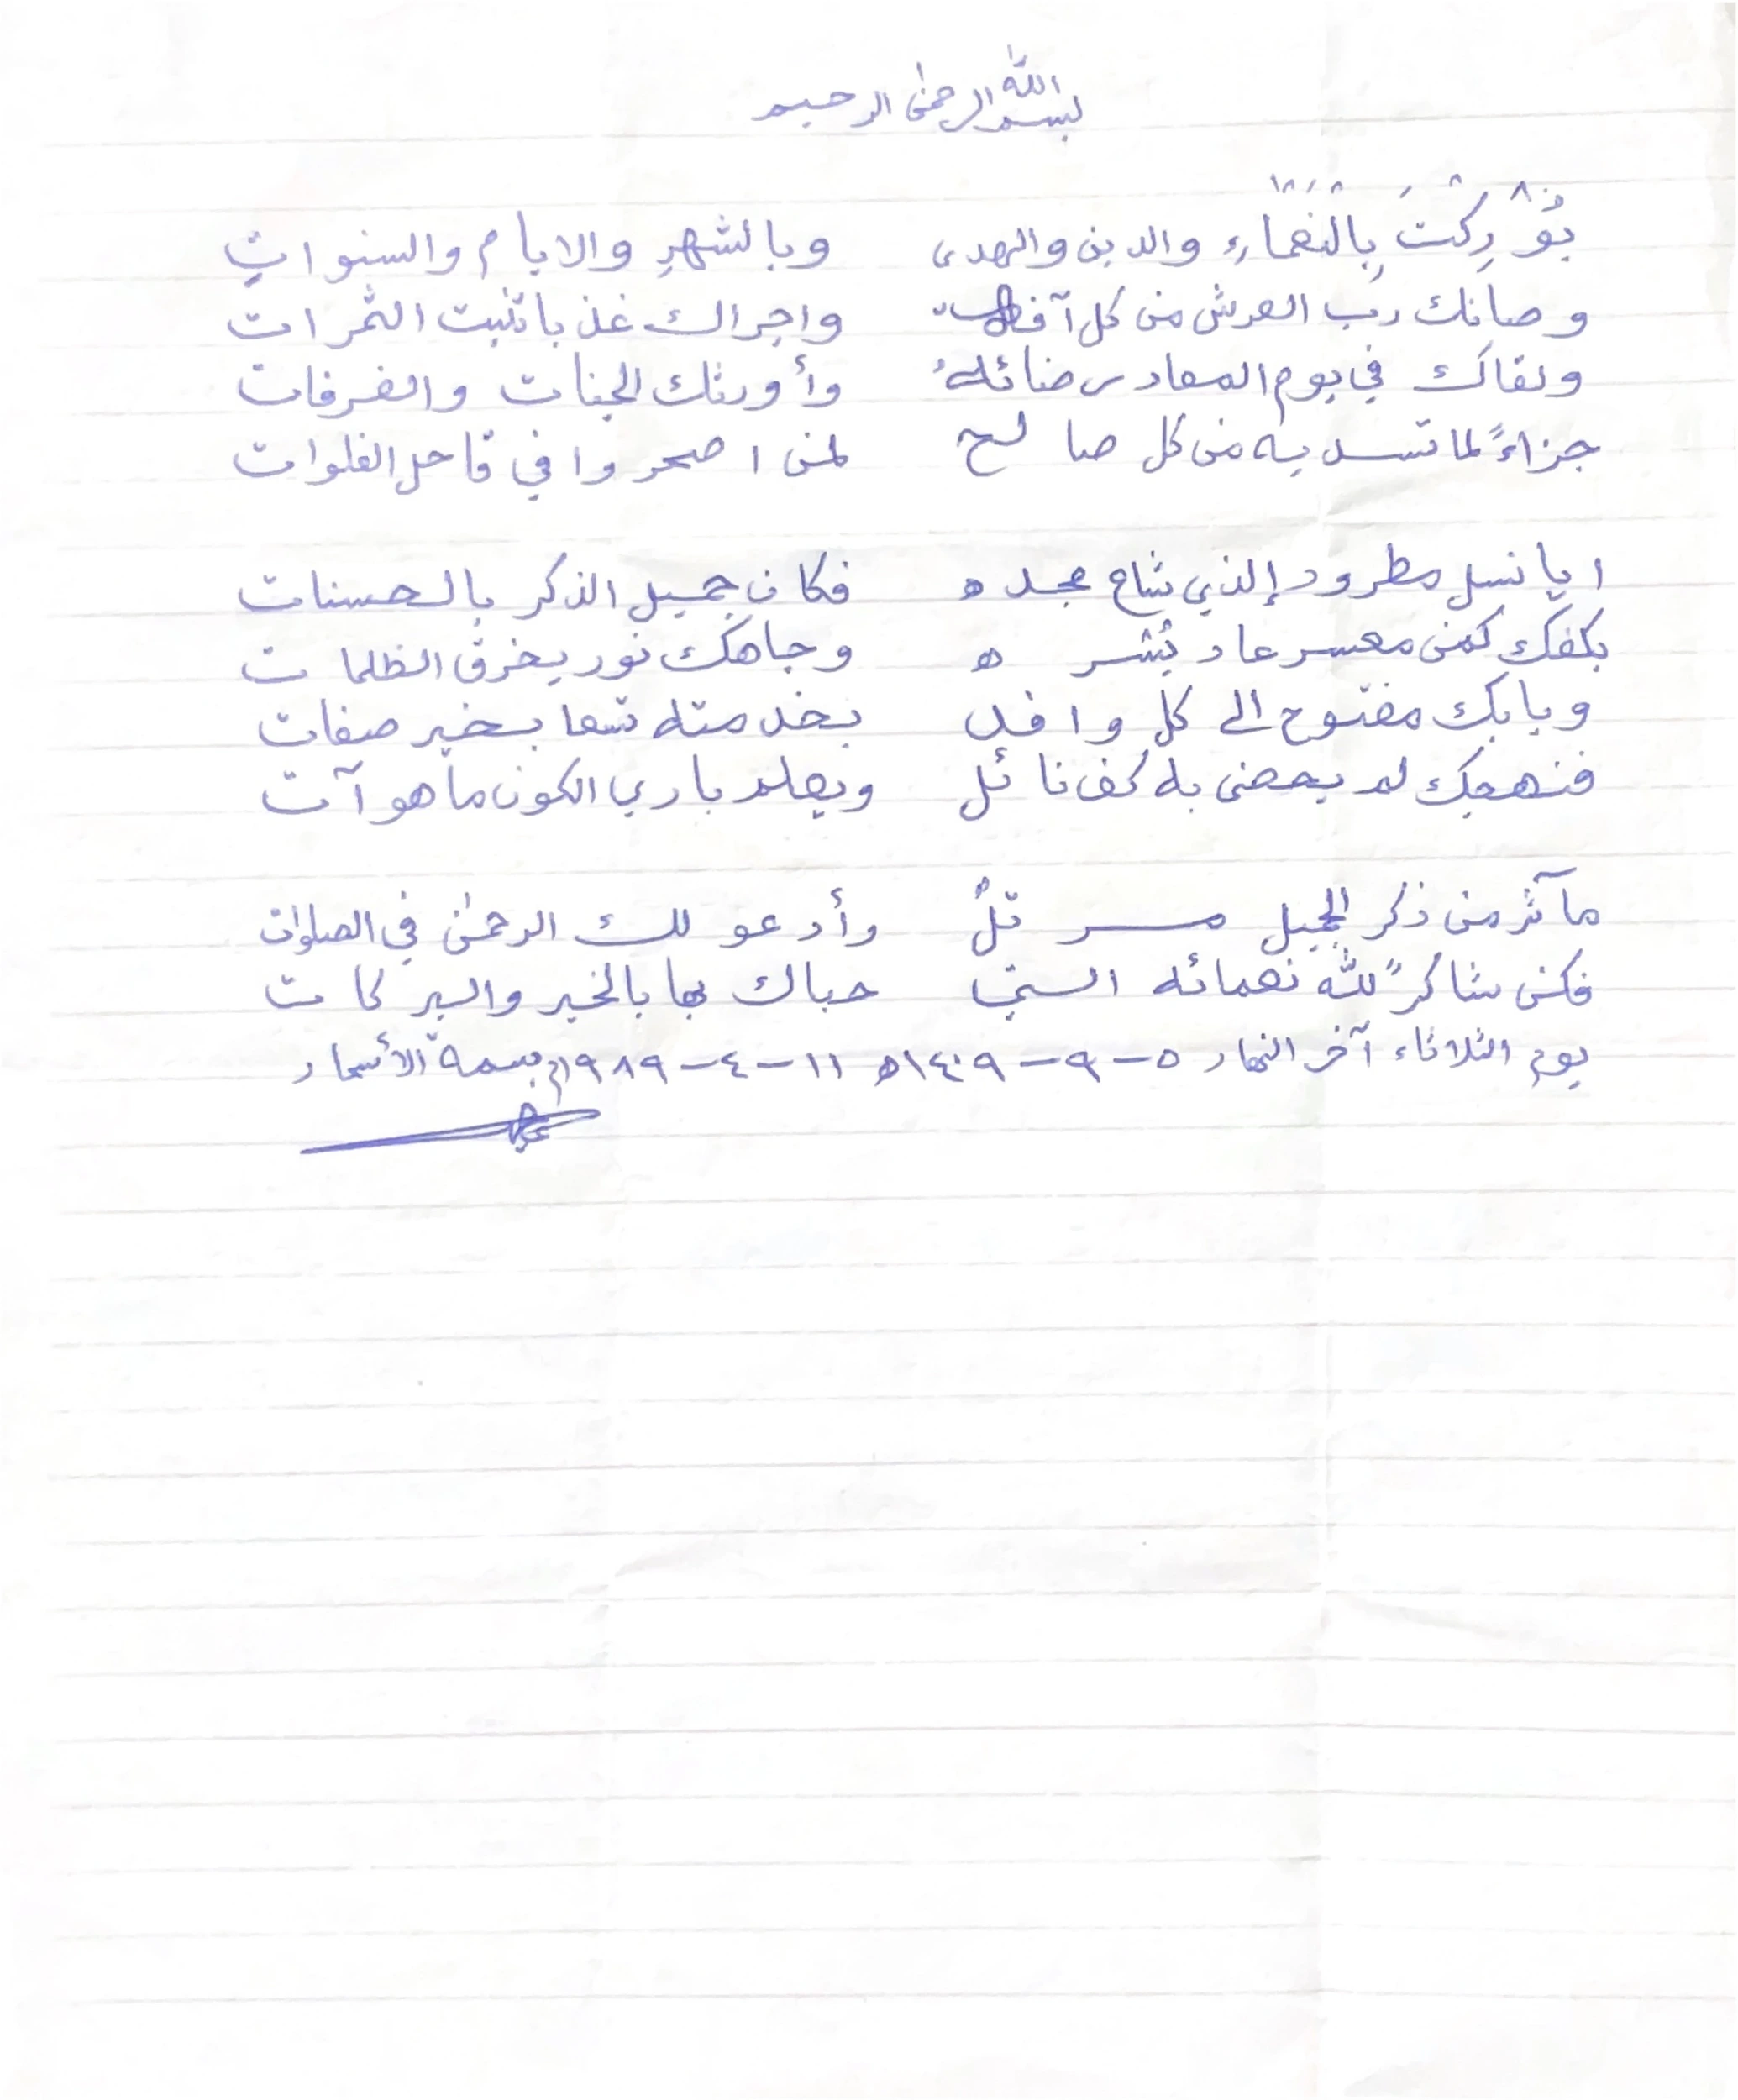 بسم الله الرحمن الرحيم
بُوْرِكتَ بِالنعماءِ والدين والهدى وبالشهرِ والايام والسنواتِ
وصانك رب العرش من كل آفة واجراك عذبا تنبت الثمرات
ولقاك في يوم المعاد رضائهُ وأورثك الجنات والغرفات
جزاءً لما تسديه من كل صالح لمن اصحروا في قاحل الفلوات
ايا نسل مطرود إلذي شاع مجده فكان جميل الذكر بالحسنات
بكفك كمن معسر عاد يُسْره وجاهك نور يخرق الظلمات
وبابك مفتوح الى كل وافد بخدمته تسعا بخير صفات
فنهجك لم يحضى به كف نائل ويعلم باري الكون ما هو آت
مآثر من ذكر الجميل وأدعو لك الرحمن في الصلوات
فكن شاكرً لله نعمائه التي حباك بها بالخير والبركات
يوم الثلاثاء آخر النهار ٥-٩-١٤٠٩ه ١١-٤-١٩٨٩م بسمة الأسحار